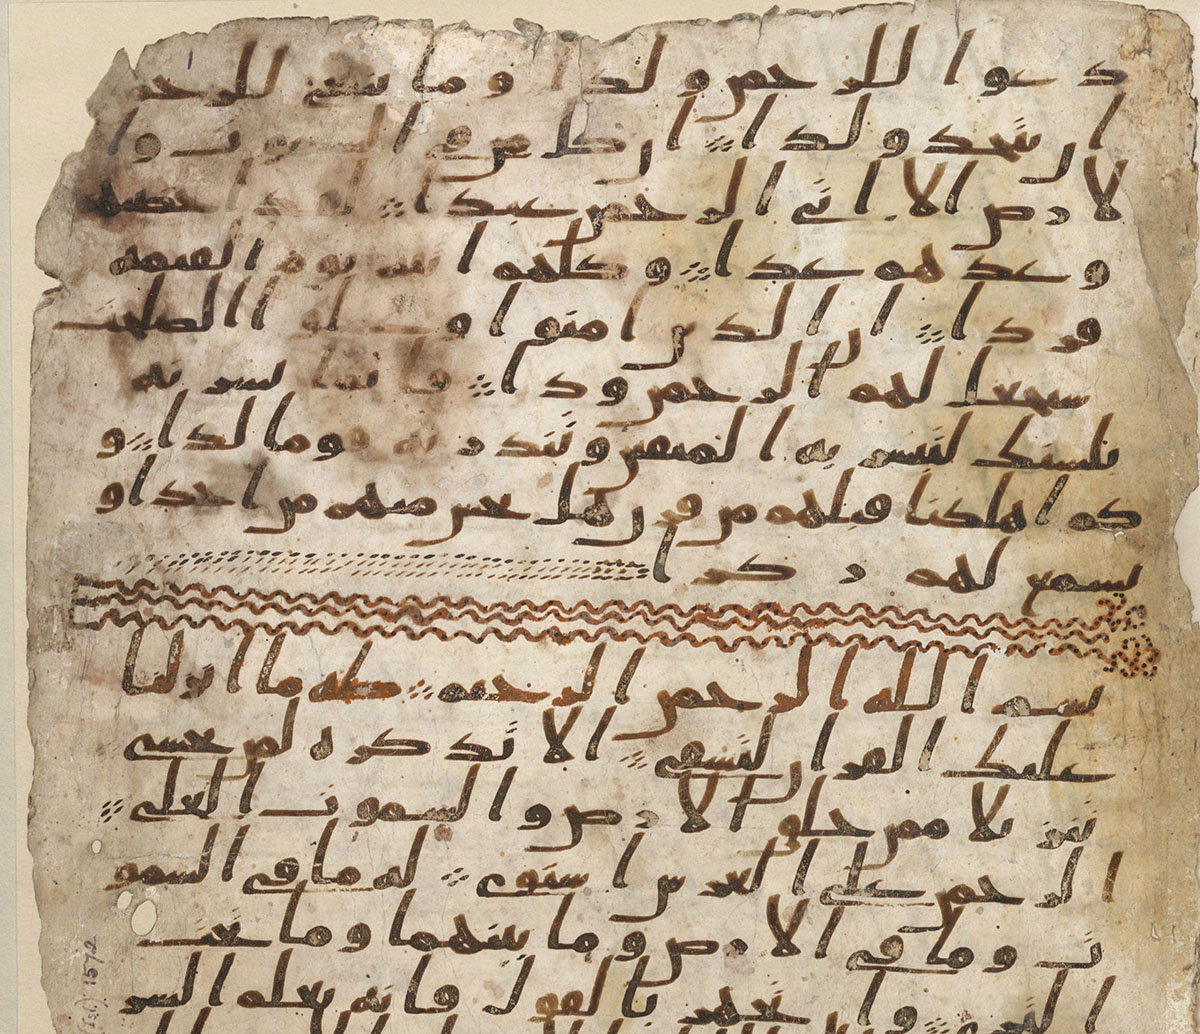 دعوا للرحمن ولدا وما ينبغي للرحمن
ان يتخذ ولدا ان كل من في السموت وا
لارض الا اتي الرحمن عبدا لقد احصيهم
وعدهم عدا وكلهم اتيه يوم القيمه
فردا ان الذين امنوا وعملوا الصلحت
سيجعل لهم الرحمن ودا فانما يسرنه
بلسنك لتبشر به المتقين وتنذر به قوما لدا و
كم اهلكنا قبلهم من قرن هل تحس منهم من احد او
تسمع لهم ركزا
بسم الله الرحمن الرحيم طه ما انزلنا
عليك القران لتشقى الا تذكره لمن يخشى
تنزيلا ممن خلق الارض والسموت العلى
الرحمن على العرش استوى له ما في السمو
ت وما في الارض وما بينهما وما تحت
الثرى وان تجهر بالقول فانه يعلم السر
Isl. 1572